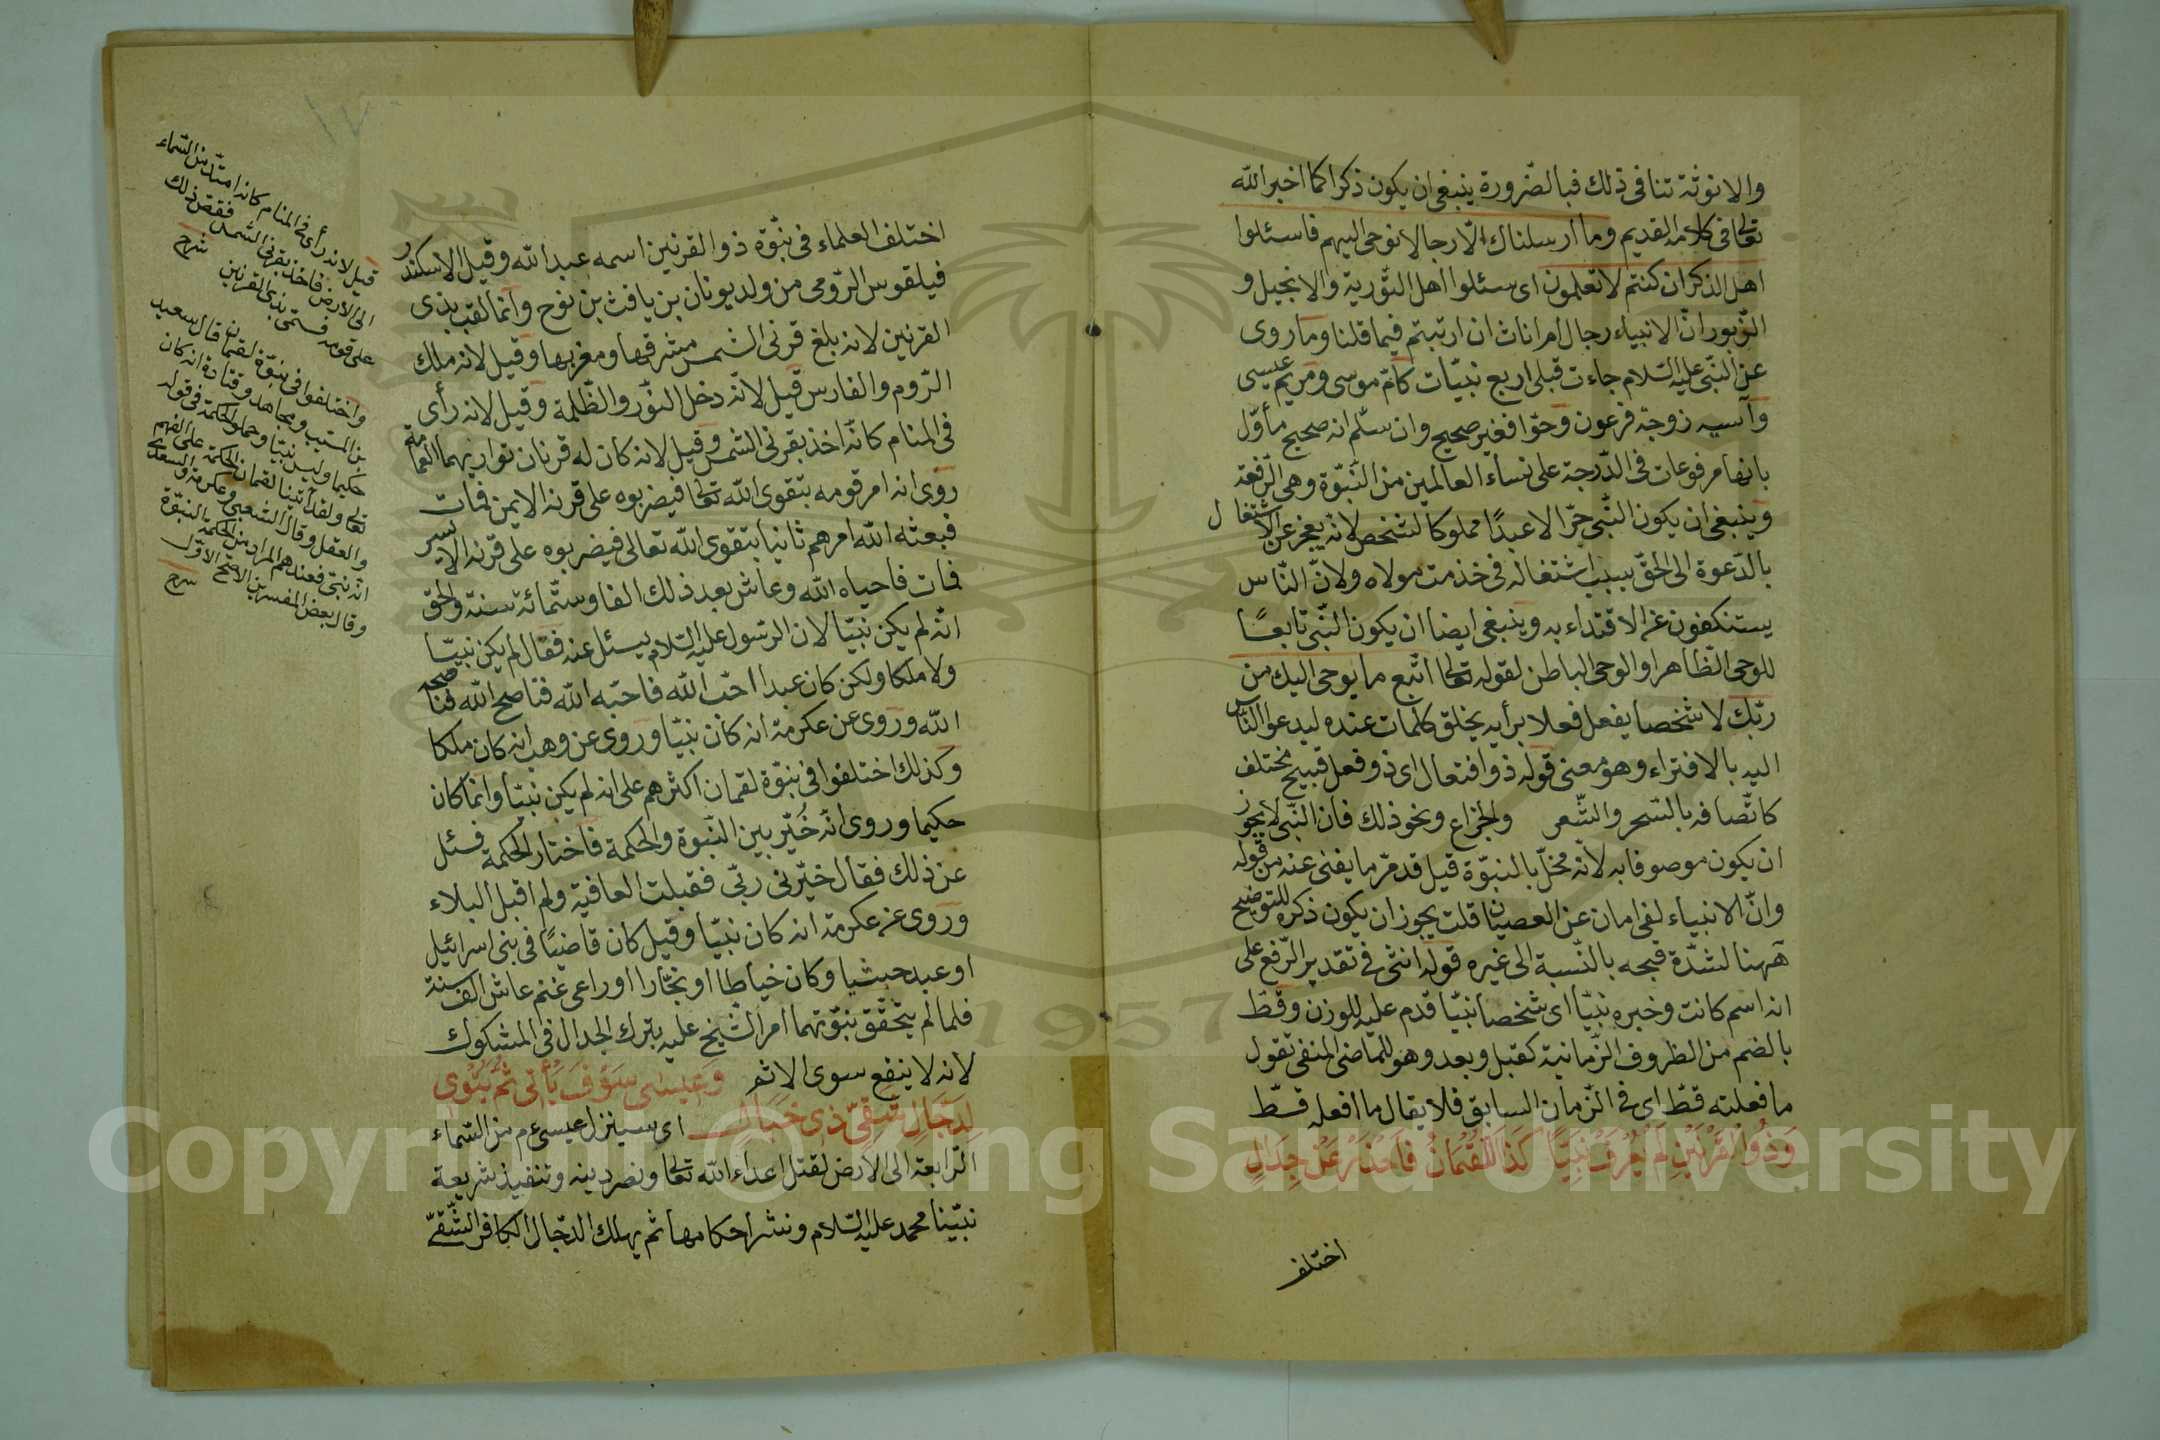 والانوثة تنافى ذلك فبالضرورة ينبغى ان يكون ذكرا كما اخبر الله
تعالى فى كلامه القديم وما ارسلناك الّا رجالا نوحى اليهم فاسئلوا
اهل الذكر ان كنتم لا تعلمون اى سئلوا اهل التّورية والانجيل و
الزّبور انّ الانبياء رجال ام اناث ان ارتبتم فيما قلنا وما روى
عن النّبى عليه السّلام جاءت قبلى اربع نبيّات كامّ موسى ومريم عيسى
وآسيه زوجة فرعون وحوّا فغير صحيح وان سلّم انه صحيح مأوّل
بانها مرفوعات فى الدّرجة على نساء العالمين من النّبوّة وهى الرّفعة
وينبغى ان يكون النّبى حرّا لا عبدًا مملوكا لشخص لانّه يعجز عن الاشتغال
بالدّعوة الى الحقّ بسبب اشتغاله فى خذمت مولاه ولانّ النّاس
يستنكفون عن الاقتداء به وينبغى ايضا ان يكون النّبى تابعًا
للوحى الظّاهر او الوحى الباطن لقوله تعالى اتّبع ما يوحى اليك من
ربّك لا شخصا يفعل فعلا برأيه يخلق كلمات عنده ليدعو النّاس
اليه بالافتراء وهو معنى قوله ذو افتعال اى ذو فعل قبيح مختلف
كاتّصافه بالسّحر والشّعر والخراع ونحو ذلك فان النّبى لا يجوز
ان يكون موصوفا به لانّه مخلّ بالنبوّة قيل قد مرّ ما يغنى عنه من قوله
وانّ الانبياء لفى امان عن العصيان قلت يجوز ان يكون ذكره للتوضيح
ههنا لشدّة قبحه بالنّسبة الى غيره قوله انثى فى تقدير الرّفع على
انه اسم كانت وخبره نبيّا اى شخصا نبيّا قدم عليه للوزن وقطّ
بالضم من الظروف الزّمانية كقبل وبعد وهو للماضى المنفى تقول
ما فعلته قطّ اى فى الزّمان السابق فلا يقال ما افعله قطّ
وَذُو الْقَرْنَيْنِ لَمْ يُعْرَفْ نَبِيًّا كَذَا لُقْمَانُ فَاحْذَرْ عَنْ جِدَالِ
اختلف
اختلف العلماء فى نبوّة ذو القرنين اسمه عبد الله وقيل الاسكندر
فيلقوس الرّومى من ولد يونان بن يافث بن نوح وانّما لقب بذى
القرنين لانه بلغ قرنى الشمس مشرقها ومغربها وقيل لانه ملك
الرّوم والفارس قيل لانّه دخل النّور والظّلمة وقيل لانه رأى
فى المنام كانّه اخذ بقرنى الشمس وقيل لانه كان له قرنان تواريهما العمامة
روى انه امر قومه بتقوى الله تعالى فيضربوه على قرنه الايمن فمات
فبعثه الله امرهم ثانيا بتقوى الله تعالى فيضربوه على قرنه الايسر
فمات فاحياه الله وعاش بعد ذلك الفا وستّمائة سنة والحق
انّه لم يكن نبيّا لان الرسول عليه السّلام يسئل عنه فقال لم يكن نبيّا
ولا ملكا ولكن كان عبدا احبّ الله فاحبّه الله فناصح الله فناصحه
الله وروى عن عكرمة انه كان نبيّا وروى عن وهب انه كان ملكا
وكذلك اختلفوا فى نبوّة لقمان اكثرهم على انه لم يكن نبيّا وانّما كان
حكيما وروى انّه خُيّر بين النّبوة والحكمة فاختار الحكمة فسئل
عن ذلك فقال خيّرنى ربّى فقبلت العافية ولم اقبل البلاء
وروى عن عكرمة انه كان نبيّا وقيل كان قاضيًا فى بنى اسرائيل
او عبد حبشيا وكان خياطا او نجّارا او راعى غنم عاش الف سنة
فلما لم يتحقّق نبوّتهما امر الشّيخ عليه بترك الجدال فى المشكوك
لانه لا ينفع سوى الاثم وَعِيسٰى سَوْفَ يَأْتِى ثُمَّ يُتْوِى
لِدَجَّالٍ شَقِىّ ذِى خَبَالِ اى سينزل عيسى ع م من السّماء
الرّابعة الى الارض لقتل اعداء الله تعالى ونصر دينه وتنفيذ شريعة
نبيّنا محمد عليه السّلام ونشر احكامها ثم يهلك الدّجال الكافر الشّقىّ
قيل لانه رأى فى المنام كانه امتدّ من السّماء
الى الارض فاخذ بقرنى الشمس فقصّ ذلك
على قومه فسمّى بذى القرنين شرح
واختلفوا فى نبوّة لقمان قال سعيد
بن المسيب ومجاهد وقتادة انه كان
حكيما وليس نبيّا وحملوا الحكمة فى قوله
تعالى ولقد آتينا لقمان الحكمة على الفهم
والعقل وقال الشعبى وعكرمة والسدى
انّه نبىّ فعندهم المراد من الحكمة النبوّة
وقال بعض المفسرين الاصحّ الاوّل شرح
Copyright © King Saud University
1957